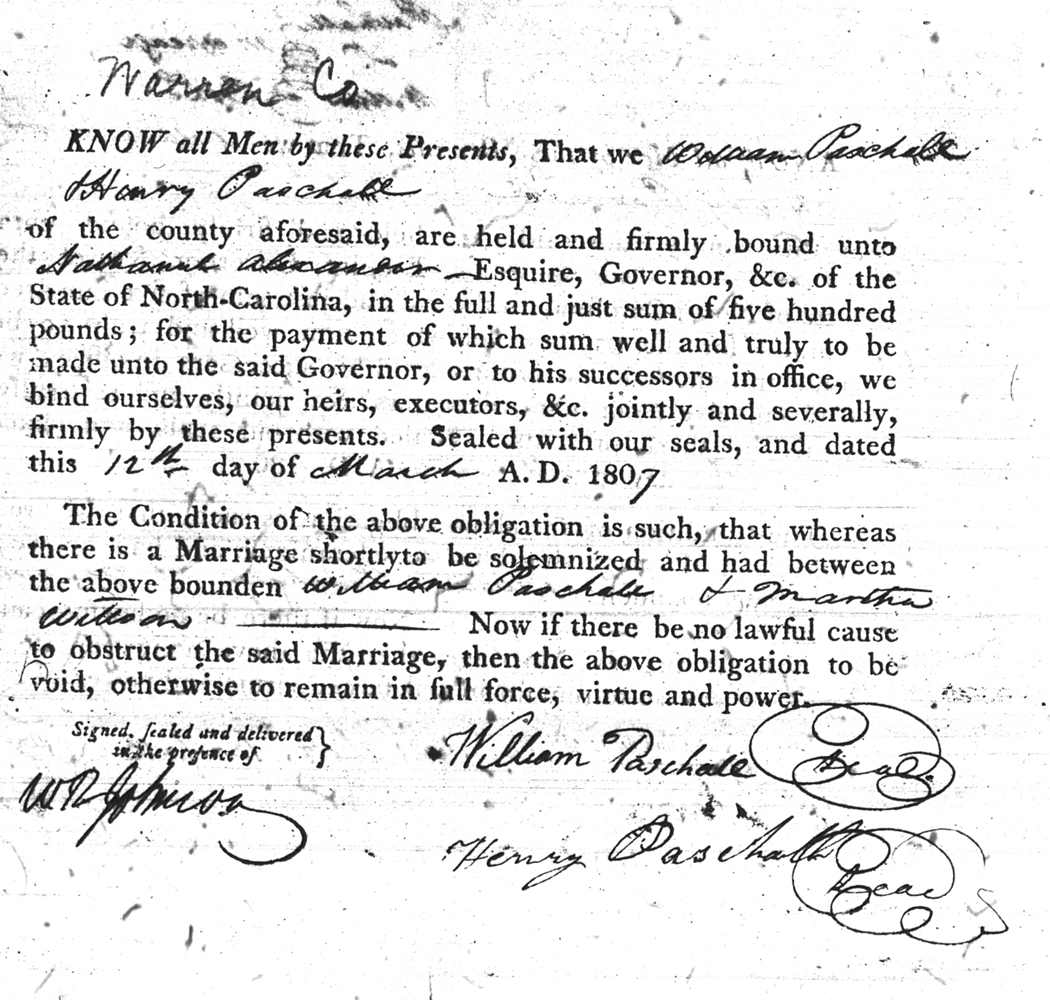 Warren Co
KNOW all Men by these Presents, That we William Paschall
& Henry Paschall
of the county aforesaid, are held and firmly bound unto
Nathaniel Alexander Esquire, Governor, &c. of the
State of North-Carolina, in the full and just sum of five hundred
pounds; for the payment of which sum well and truly to be
made unto the said Governor, or to his successors in office, we
bind ourselves, our heirs, executors, &c. jointly and severally,
firmly by these presents. Sealed with our seals, and dated
this 12th day of March A. D. 1807
The Condition of the above obligation is such, that whereas
there is a Marriage shortlyto be solemnized and had between
the above bounden William Paschall & Martha
Wilson Now if there be no lawful cause
to obstruct the said Marriage, then the above obligation to be
void, otherwise to remain in full force, virtue and power.
Signed, sealed and delivered
in the presence of
William Paschall Seal
W R Johnson
Henry Paschall Seal